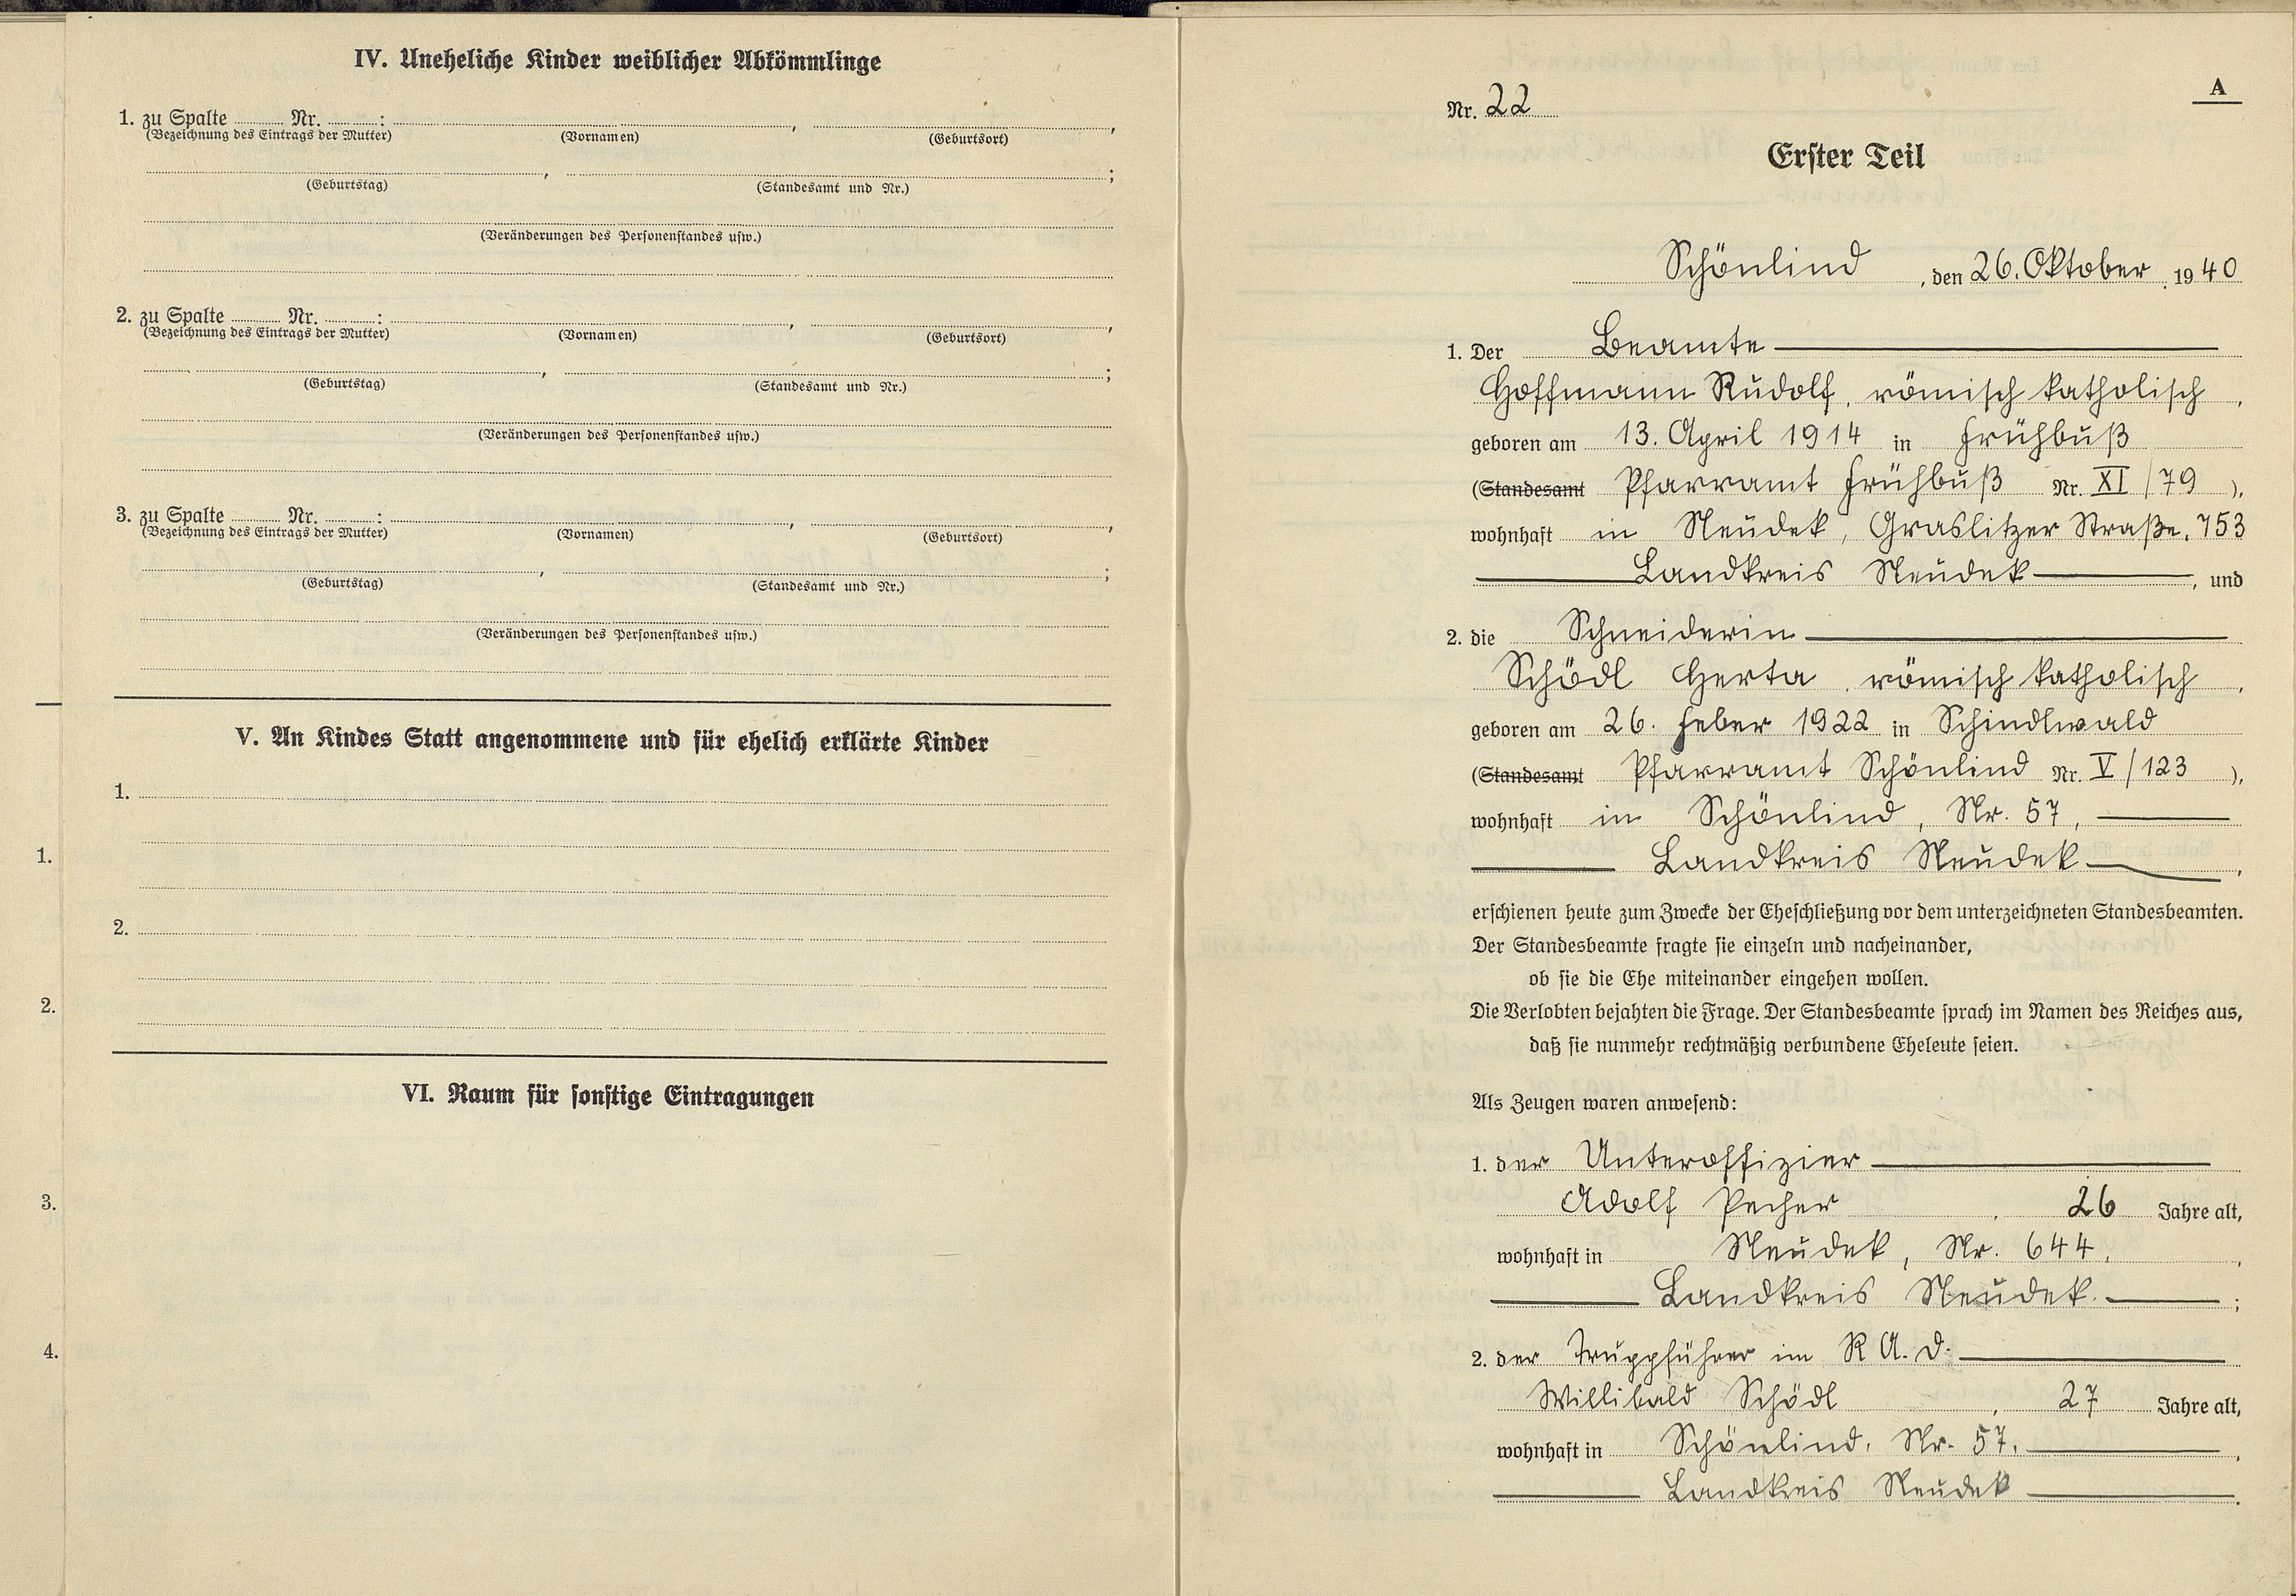 IV. Uneheliche Kinder weiblicher Abkömmlinge
1. zu Spalte ........ Nr. ........:
(Bezeichnung des Eintrags der Mutter) (Vornamen) (Geburtsort)
(Geburtstag) (Standesamt und Nr.)
(Veränderungen des Personenstandes usw.)
2. zu Spalte ........ Nr. ........:
(Bezeichnung des Eintrags der Mutter) (Vornamen) (Geburtsort)
(Geburtstag) (Standesamt und Nr.)
(Veränderungen des Personenstandes usw.)
3. zu Spalte ........ Nr. ........:
(Bezeichnung des Eintrags der Mutter) (Vornamen) (Geburtsort)
(Geburtstag) (Standesamt und Nr.)
(Veränderungen des Personenstandes usw.)
V. An Kindes Statt angenommene und für ehelich erklärte Kinder
1.
2.
VI. Raum für sonstige Eintragungen
1.
2.
3.
4.
A
Nr. 22
Erster Teil
Schönlind, den 26. Oktober 1940
1. Der Beamte
Hoffmann Rudolf, römisch katholisch,
geboren am 13. April 1914 in Frühbuß
(Standesamt Pfarramt Frühbuß Nr. XI/79),
wohnhaft in Neudek, Graslitzer Straße, 753
Landkreis Neudek, und
2. die Schneiderin
Schödl Herta, römisch katholisch,
geboren am 26. Feber 1922 in Schindlwald
(Standesamt Pfarramt Schönlind Nr. V/123),
wohnhaft in Schönlind, Nr. 57,
Landkreis Neudek,
erschienen heute zum Zwecke der Eheschließung vor dem unterzeichneten Standesbeamten.
Der Standesbeamte fragte sie einzeln und nacheinander,
ob sie die Ehe miteinander eingehen wollen.
Die Verlobten bejahten die Frage. Der Standesbeamte sprach im Namen des Reiches aus,
daß sie nunmehr rechtmäßig verbundene Eheleute seien.
Als Zeugen waren anwesend:
1. der Unteroffizier
Adolf Pecher, 26 Jahre alt,
wohnhaft in Neudek, Nr. 644,
Landkreis Neudek.;
2. der Truppführer im R A. D.
Willibald Schödl, 27 Jahre alt,
wohnhaft in Schönlind, Nr. 57,
Landkreis Neudek.